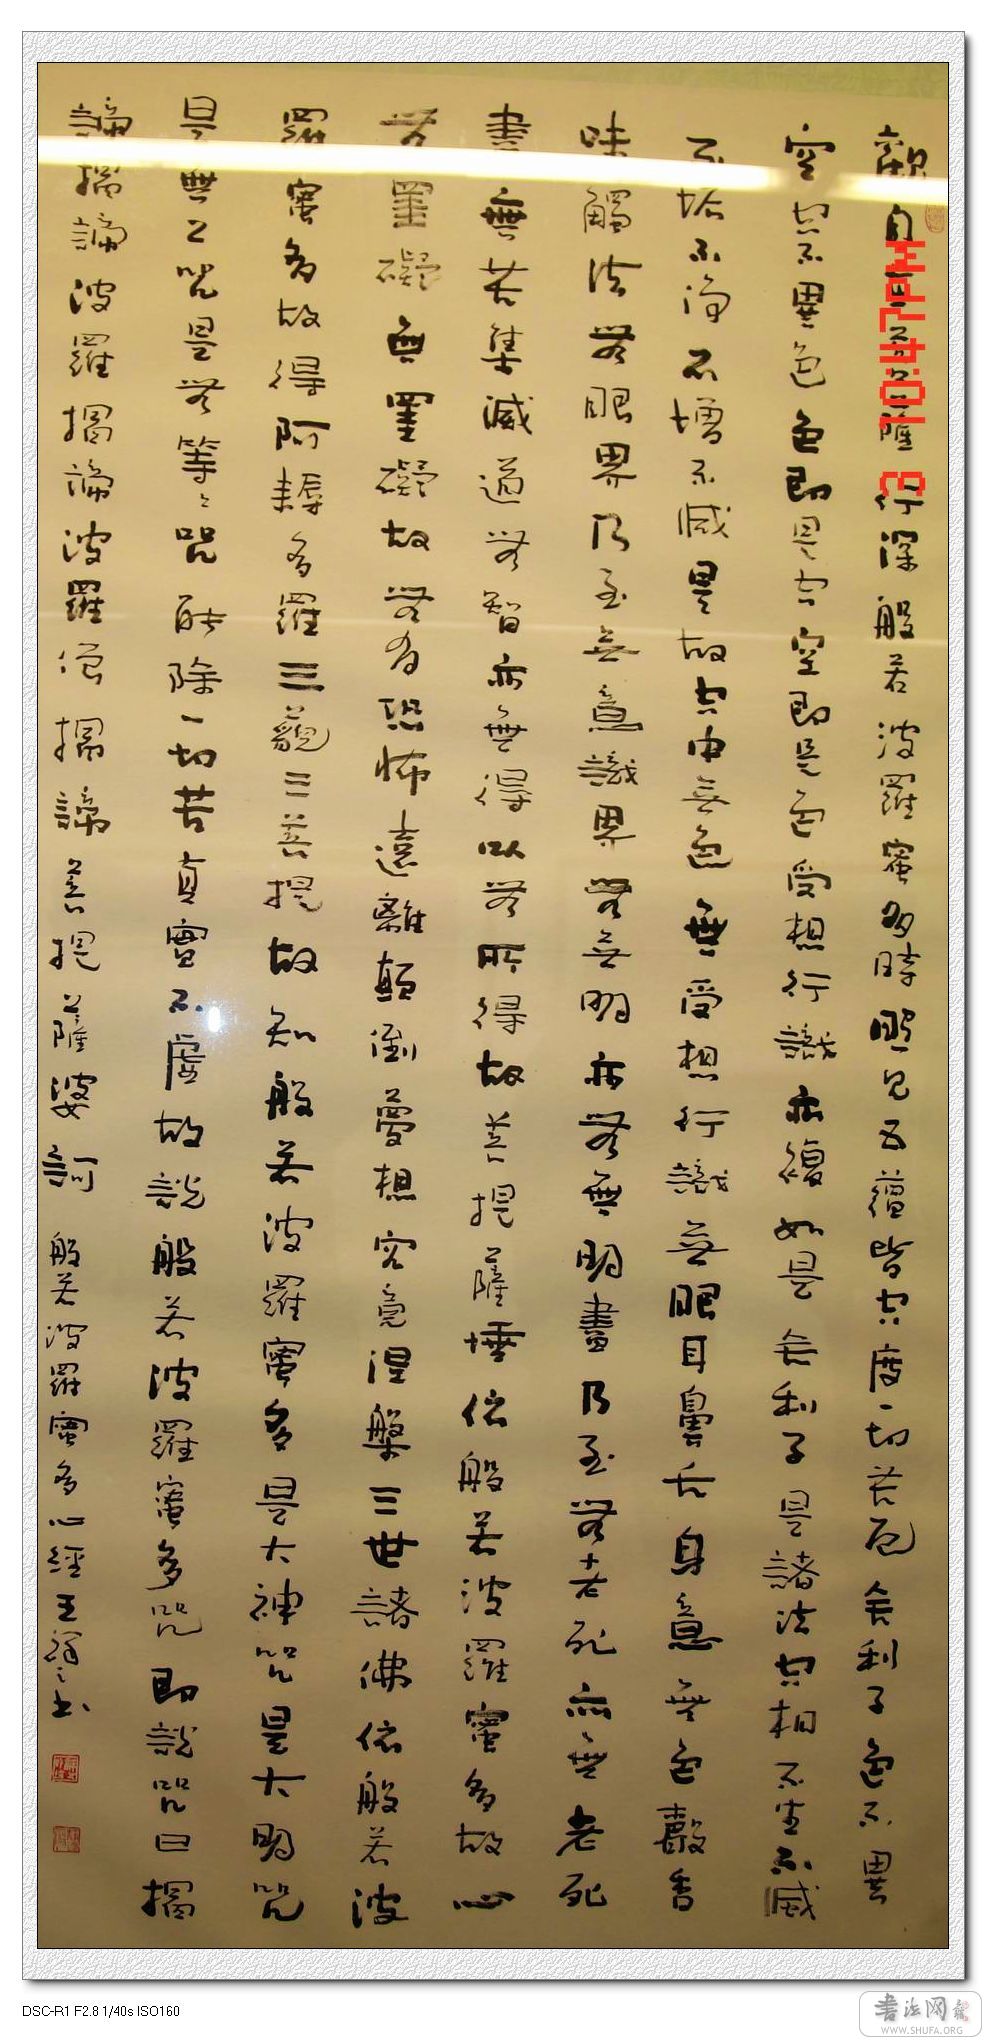 觀自在菩薩行深般若波羅蜜多時照見五蘊皆空度一切苦厄舍利子色不異
空空不異色色即是空空即是色受想行識亦復如是舍利子是諸法空相不生不滅
不垢不淨不增不減是故空中無色無受想行識無眼耳鼻舌身意無色聲香
味觸法無眼界乃至無意識界無無明亦無無明盡乃至無老死亦無老死
盡無苦集滅道無智亦無得以無所得故菩提薩埵依般若波羅蜜多故心
無罣礙無罣礙故無有恐怖遠離顛倒夢想究竟涅槃三世諸佛依般若波
羅蜜多故得阿耨多羅三藐三菩提故知般若波羅蜜多是大神咒是大明咒
是無上咒是無等等咒能除一切苦真實不虛故說般若波羅蜜多咒即說咒曰揭
諦揭諦波羅揭諦波羅僧揭諦菩提薩婆訶 般若波羅蜜多心經 王 之書
3 10:47PM
DSC-R1 F2.8 1/40s ISO160
書法网
WWW.SHUFA.ORG